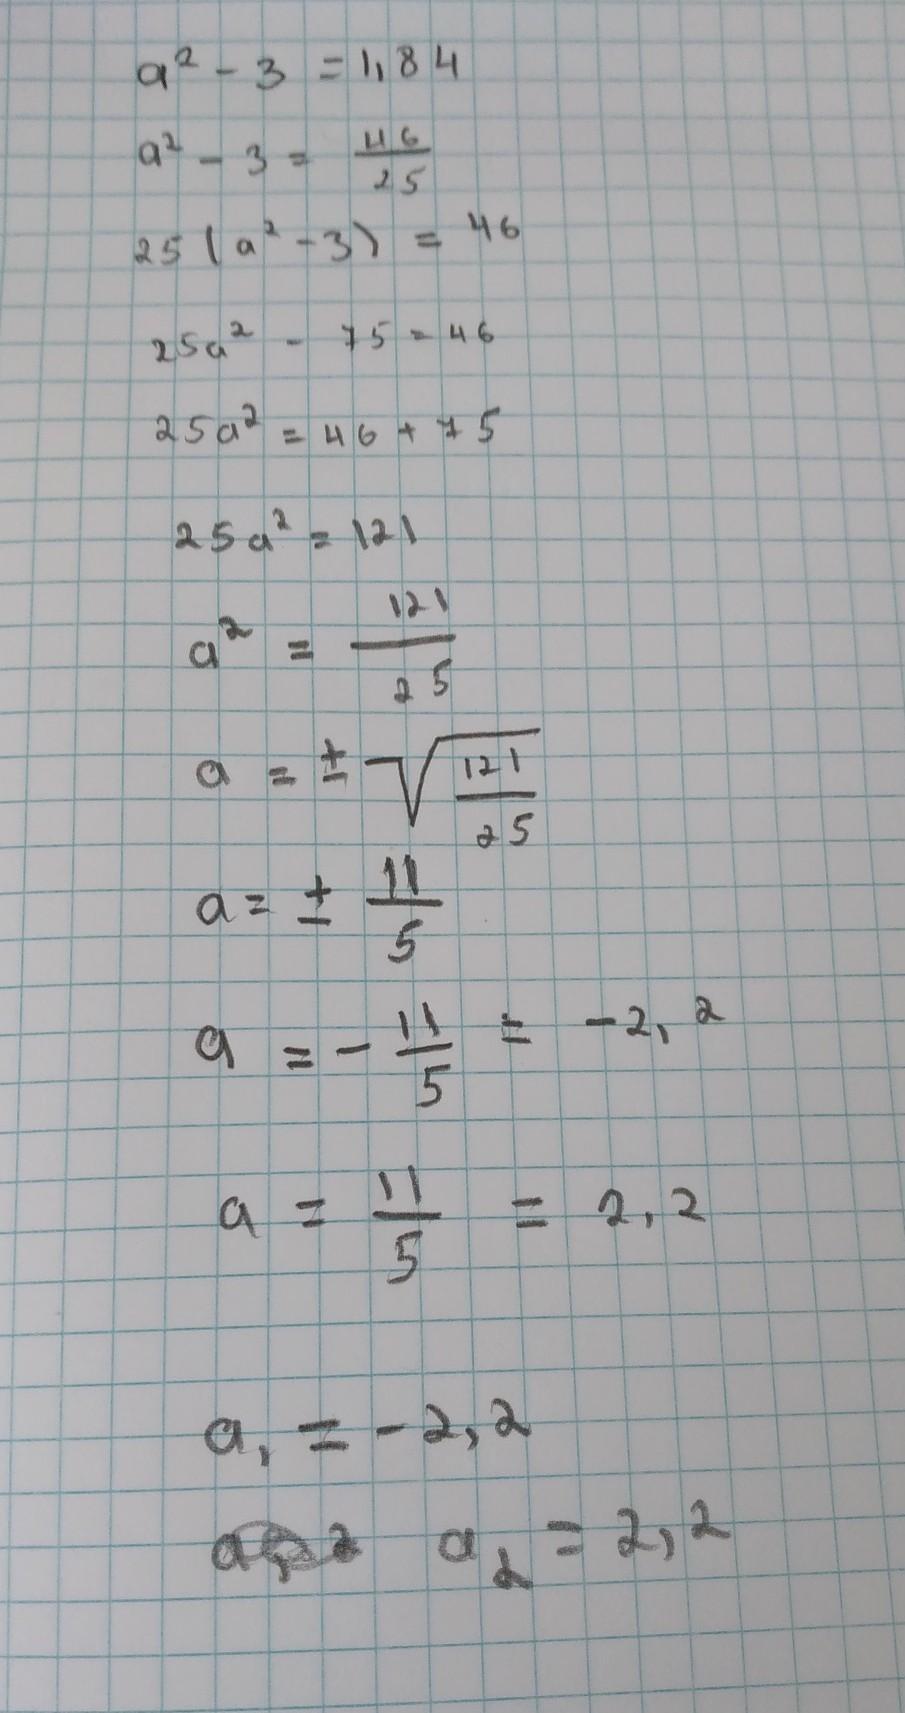 a² - 3 = 1,84
a² - 3 = 46/25
25 (a² - 3) = 46
25a² - 75 = 46
25a² = 46 + 75
25a² = 121
a² = 121/25
a = ± √(121/25)
a = ± 11/5
a = - 11/5 = -2,2
a = 11/5 = 2,2
a₁ = -2,2
a₂ = 2,2